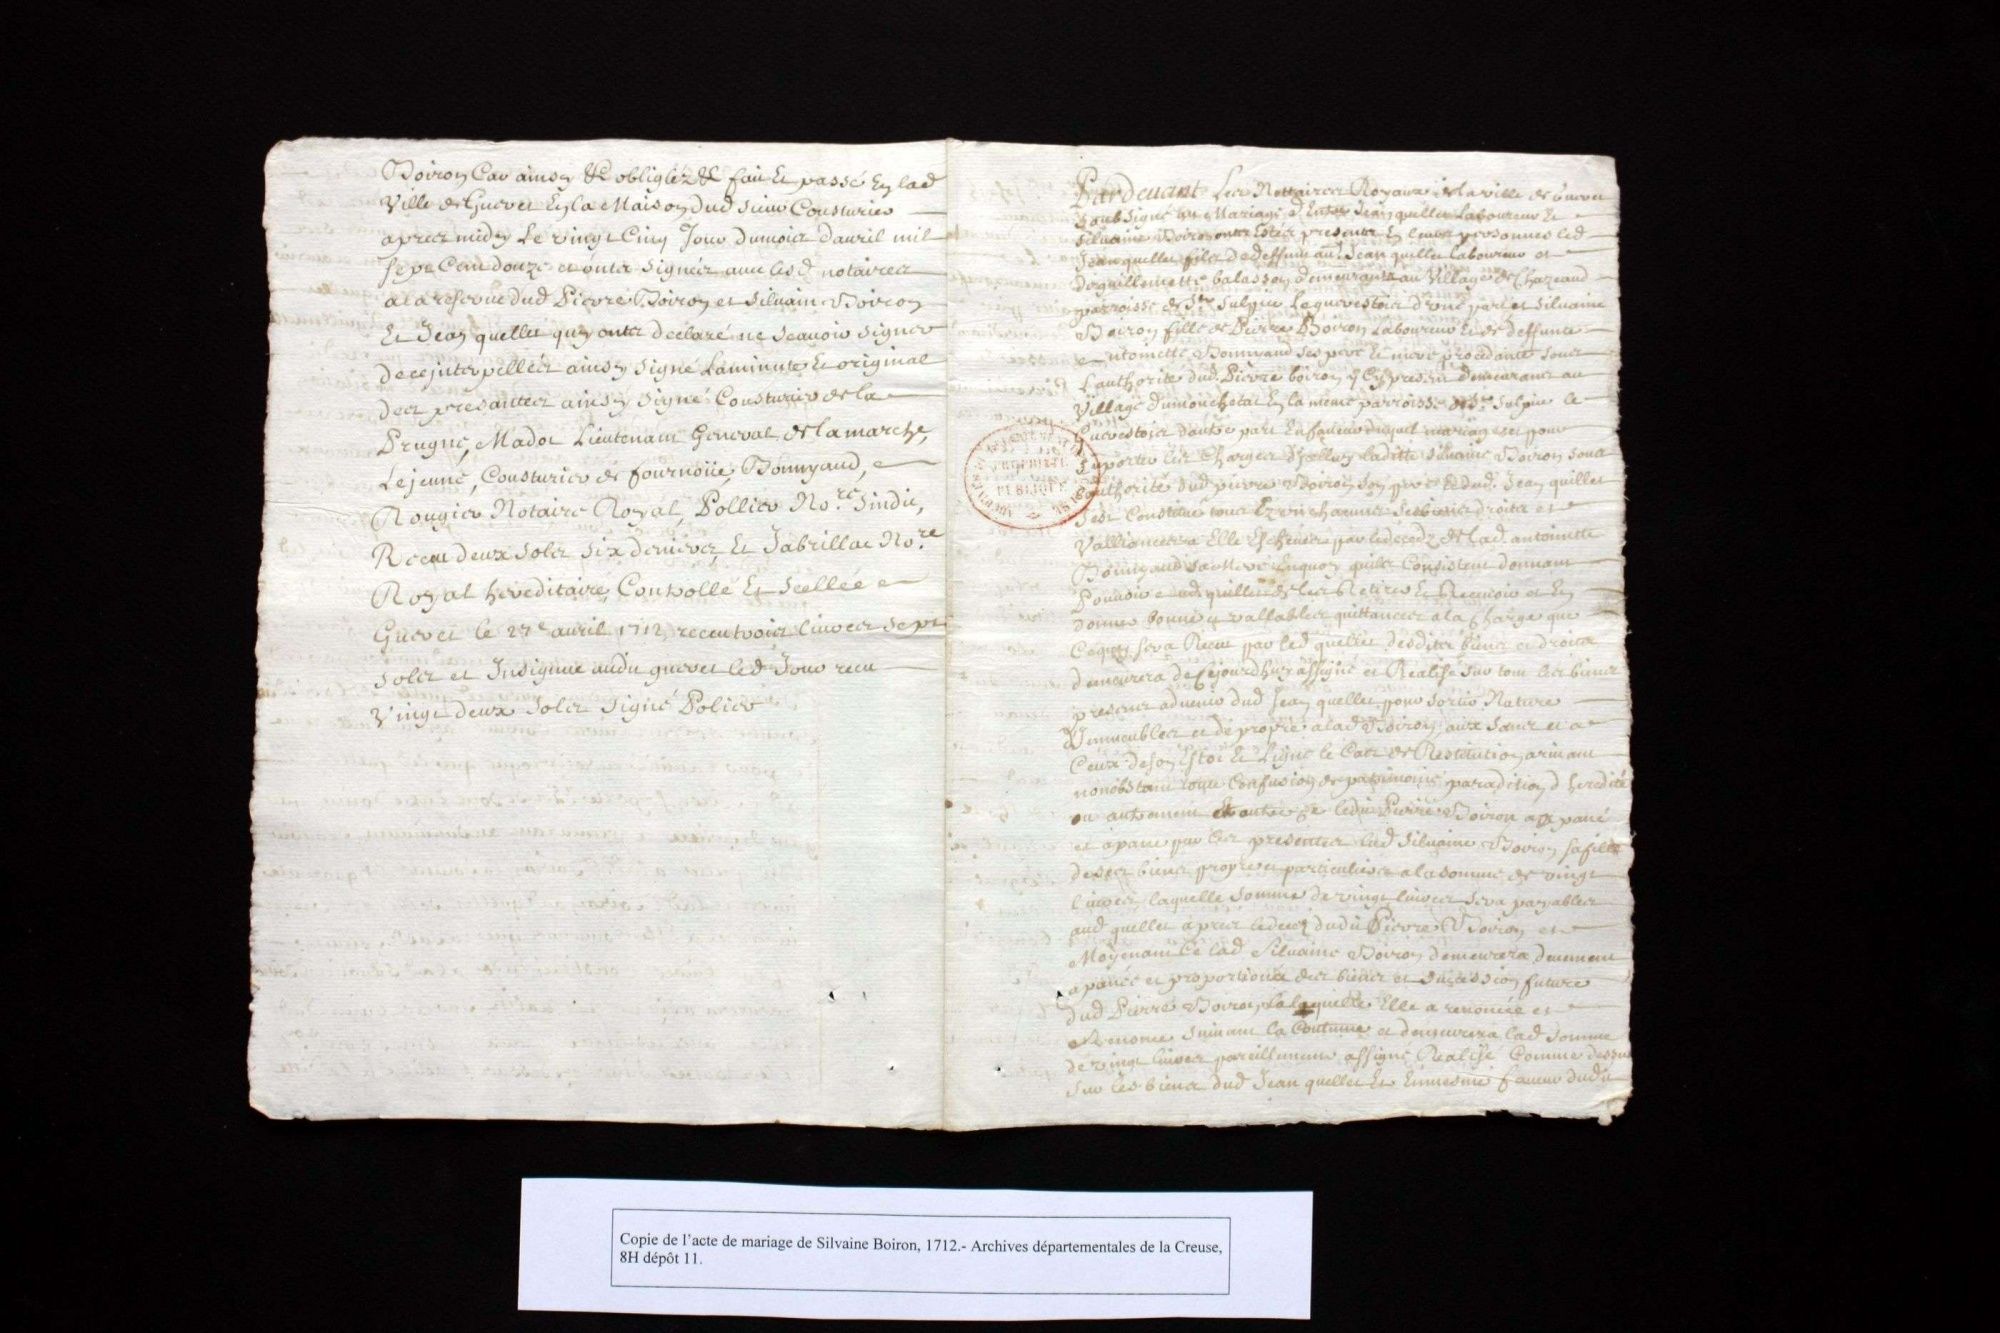 Boiron Car ainsy &c obliglez &c fait Et passé En lad
Ville de Gueret En la Maison dud sieur Cousturier
apres midy Le vingt Cinq Jour du mois d'avril mil
sept Cent douze et onts signés avec lesd notaires
a la reserve dud Pierre Boiron et Silvain Boiron
Et Jean quellet quy onts declaré ne scavoir signer
de ce interpellés ainsy signé La minute Et original
des presantes ainsy signé Cousturier de la
Prugne, Madot Lieutenant General de la marche,
Lejeune, Cousturier de fournoüe, Bonnyaud,
Rougier Notaire Royal, Pollier No.re Sindic,
Receu deux sols six deniers, Et Jabrillac No.re
Royal hereditaire, Controllé Et Scellée
Gueret le 27e avril 1712, receu trois livres sept
sols et Insignué audit gueret led Jour receu
Vingt deux sols signé Polier
Pardevant Les Nottaires Royaux de la ville de Gueret
Soubsignés au Mariage d'Entre Jean quellet Laboureur Et
Silvaine Boiron onts Estés presents En leurs personnes led
Jean quellet fils de deffunt Jean quellet Laboureur et
de guillemette balasson demeurant au Village de Chazeaud
parroisse de St Sulpice Le guerestois d'une part et Silvaine
Boiron fille de Pierre Boiron Laboureur Et de deffunte
antoinette Bonnyaud ses pere Et mere procedante sous
L'authorité dud. Pierre boiron y Cy present demeurants au
Village du mouchetat En la meme parroisse de St Sulpice le
Guerestois d'autre part En faveur duquel mariage et pour
suporter les Charges d'Icelluy laditte Silvaine Boiron sous
l'authorité dud pierre Boiron son pere Et dud. Jean quellet
sest Constitué tous Et un chacuns ses biens droits et
Vallliances a Elle Escheues par le deceds de lad. antoinette
Bonnyaud sa Mere En quoy qu'ils Consistent donnant
Pouvoir aud. quellet de les Retirer Et Recevoir et En
donner bonne et vallables quittances a la Charge que
Ce quy sera Receu par led quellet desdits biens et droits
demeurera de Cejourdhuy assigné et Realisé sur tous les biens
presens advenir dud Jean quellet pour sortir Nature
D'immeubles et de propre a lad Boiron aux siens et a
Ceux de son Estoc Et Ligne le Cas de Restitution arivant
nonobstant toute Confusion de patrimoine par adition d'heredité
ou autrement Et outre Ce ledit Pierre Boiron a apané
et apane par les presentes lad Silvaine Boiron sa fille
de ses biens propres et particuliers a la somme de vingt
livres, laquelle somme de vingt livres sera payables
aud quellet apres le deces dudit Pierre Boiron et
Moyenant Ce lad Silvaine Boiron demeurera deuement
apanée et proportionée des biens et succession future
dud Pierre Boiron a laquelle Elle a renoncée et
Renonce suivant la Coutume et demeurera lad somme
de vingt livres pareillement assigné Realisé Comme dessus
sur les biens dud Jean quellet Et En mesme faveur dudit
Copie de l'acte de mariage de Silvaine Boiron, 1712.- Archives départementales de la Creuse,
8H dépôt 11.